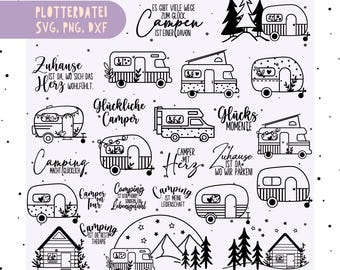 PLOTTERDATEI
SVG, PNG, DXF
ES GIBT VIELE WEGE
ZUM GLÜCK.
Campen
IST EINER DAVON
Zuhause
IST DA, WO SICH DAS
Herz WOHLFÜHLT.
Glückliche
Camper
Glücks
MOMENTE
Camping
MACHT GLÜCKLICH
CAMPER
MIT
Herz
Zuhause
IST DA, WO
WIR PARKEN!
Camper
on
Tour
Camping
Lebensgefühl
Camping
IST MEINE
LEIDENSCHAFT
Camping
IST DIE BESTE
THERAPIE